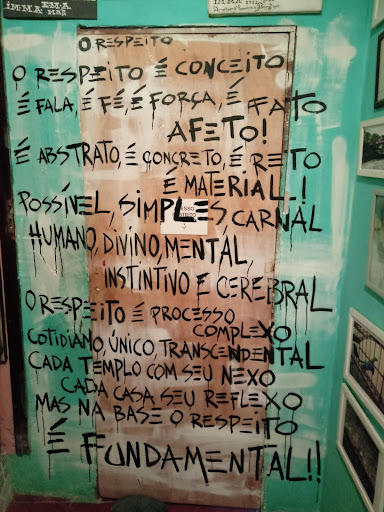 O RESPEITO
O RESPEITO É CONCEITO
É FALA, É FÉ, É FORÇA, É FATO
AFETO!
É ABSTRATO, É CONCRETO, É RETO
É MATERIAL!
POSSÍVEL, SIMPLES, CARNAL
HUMANO, DIVINO, MENTAL,
INSTINTIVO E CEREBRAL
O RESPEITO É PROCESSO
COMPLEXO
COTIDIANO, ÚNICO, TRANSCENDENTAL
CADA TEMPLO COM SEU NEXO
CADA CASA SEU REFLEXO
MAS NA BASE O RESPEITO
É FUNDAMENTAL!!